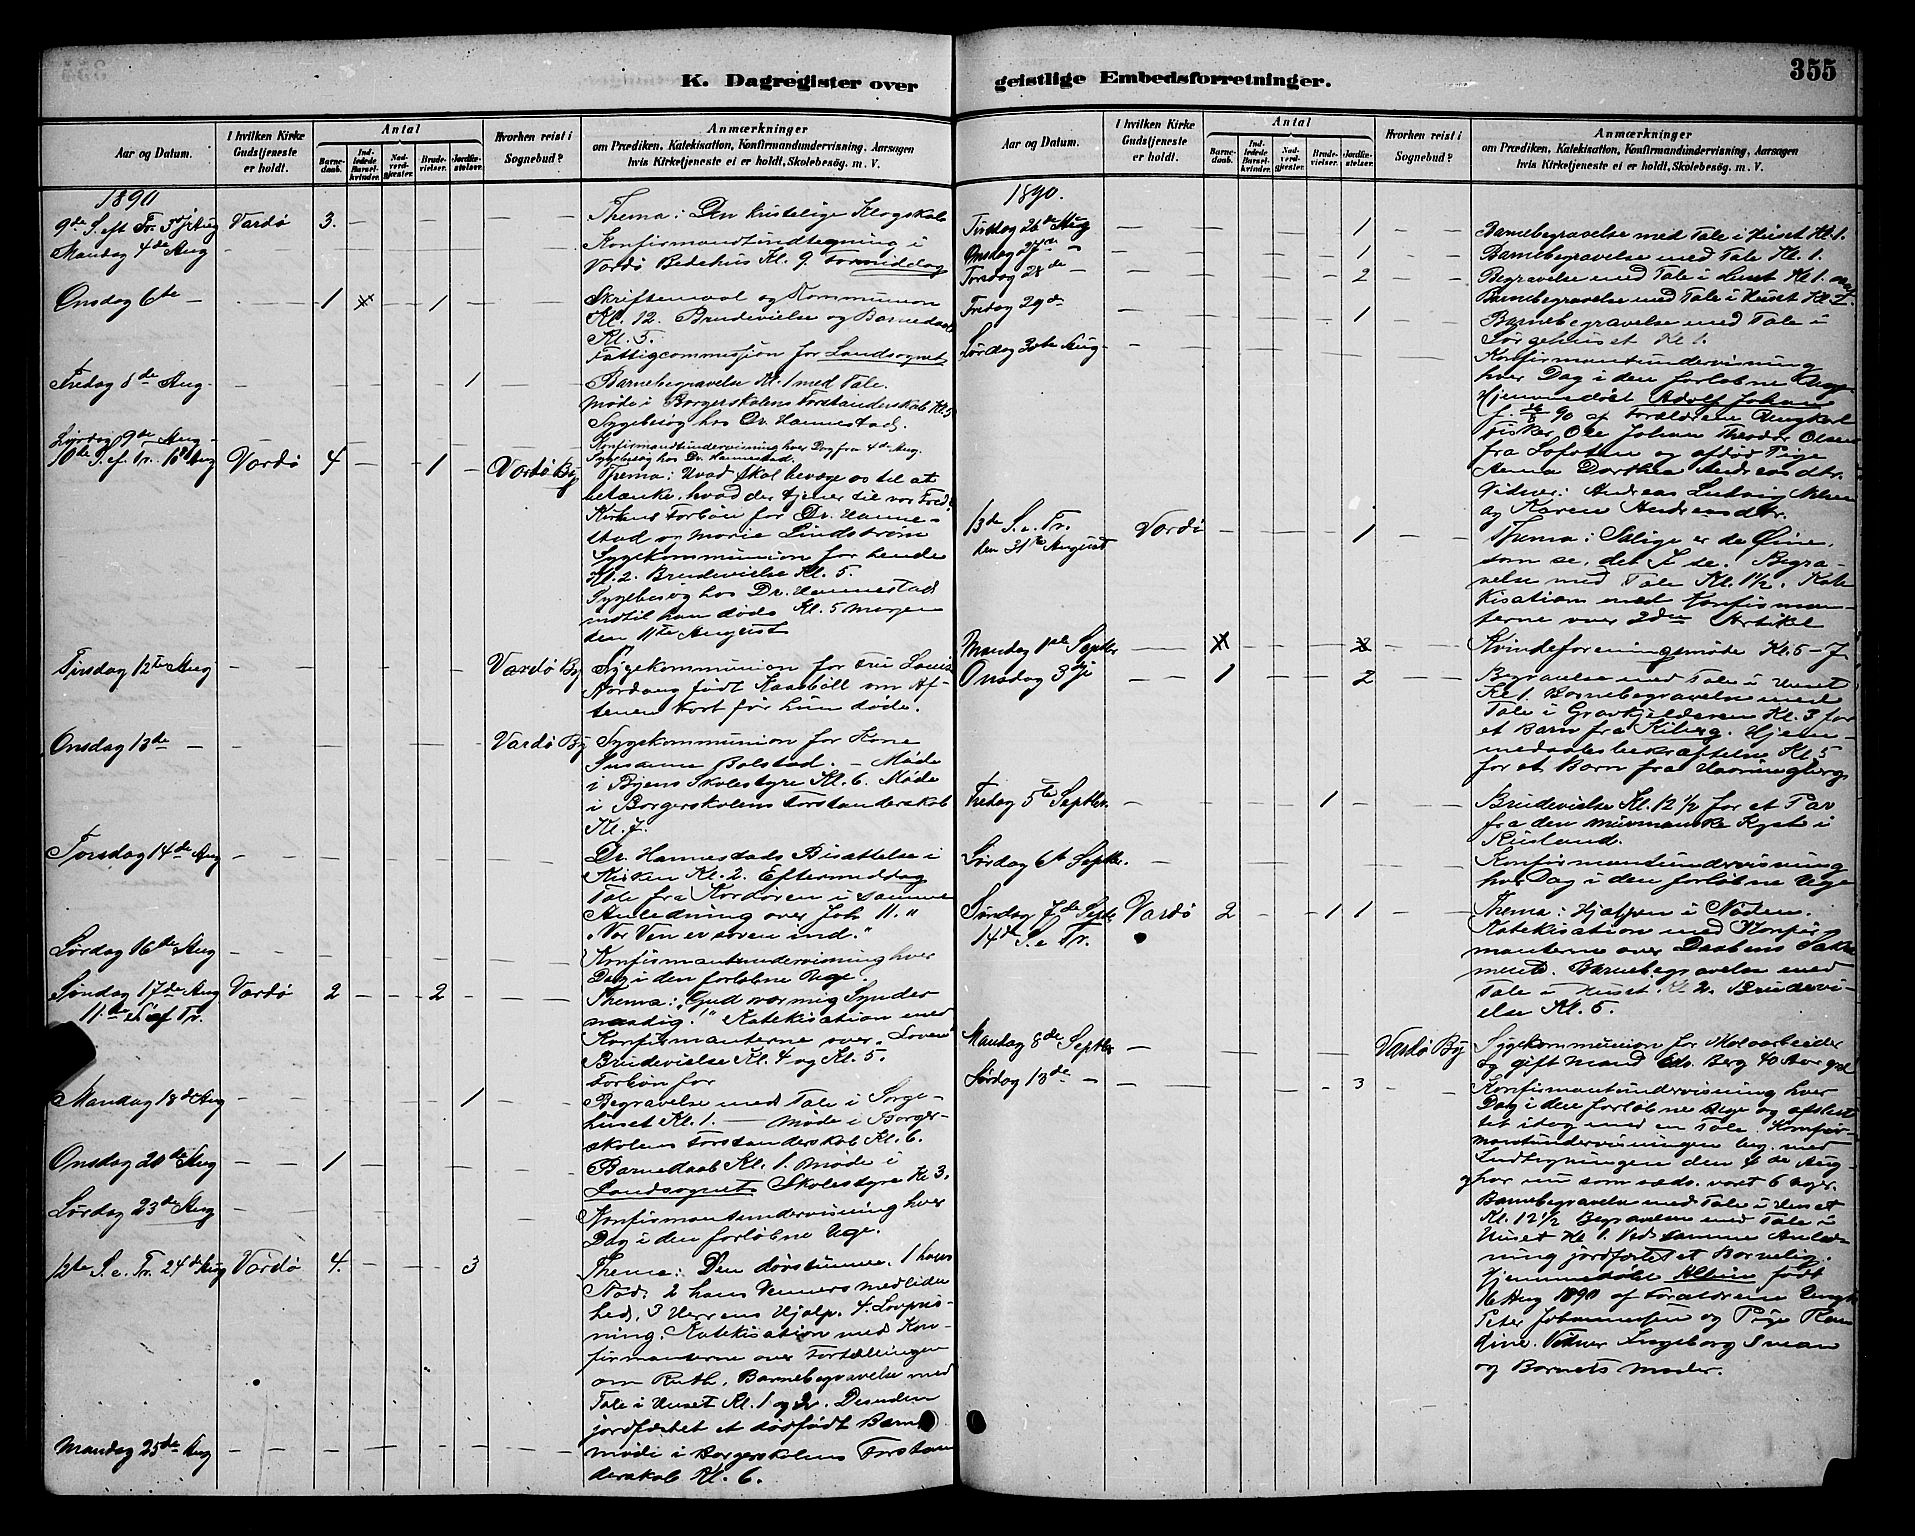 355
K. Dagregister over
geistlige Embedsforretninger.
Aar og Datum.
I hvilken Kirke Gudstjeneste er holdt.
Antal
Barnedaab.
Indledede Barselkvinder.
Nadverdgjester.
Brudevielser.
Jordfæstelser.
Hvorhen reist i Sognebud?
Anmærkninger
om Prædiken, Katekisation, Konfirmandundervisning, Aarsagen
hvis Kirketjeneste ei er holdt, Skolebesøg. m. V.
1890
9de S. eft Tr. 3dje Aug Vardø 3. Thema: Den kristelige Klogskab
Mandag 4de Aug Konfirmandtindtegning i
Vardø Bedehus Kl. 9 Formiddag
Onsdag 6te 1 1 Skriftemaal og Kommunion
Kl. 12. Brudevielse og Barnedaab
Kl. 5.
Fattigcommisjon for Landsognet
Fredag 8de Aug. 1 Barnebegravelse Kl. 1 med Tale.
Møde i Borgerskolens Forstanderskab Kl. 5
Sygebesøg hos Dr. Hannestad.
Lørdag 9de Aug. Konfirmandtundervisning hver Dag fra 4de Aug.
Sygebesøg hos Dr. Hannestad.
10de S. ef. Tr. 10de Aug Vardø 4 1 Vardø By Thema: Hvad skal bevæge os til at
betænke, hvad der tjener til vor Fred.
Kirkens Forbøn for Dr. Hanne-
stad og Marie Lindstrøm
Sygekommunion for hende
Kl. 2. Brudevielse Kl. 5.
Sygebesøg hos Dr. Hannestad
indtil han døde Kl. 5 Morgen
den 11te August
Tirsdag 12te Aug Vardø By Sygekommunion for Fru Louis
født Kaasbøll om Af-
tenen kort før hun døde.
Onsdag 13de Vardø By Sygekommunion for Kone
Susanna Bolstad. — Møde
i Byens Skolestyre Kl. 6. Møde
i Borgerskolens Forstanderskab
Kl. 7.
Torsdag 14de Aug Dr. Hannestads Bisættelse i
Kirken Kl. 2. Eftermiddag
Tale fra Kordøren i samme
Anledning over Joh 11. "
"Vor Ven er soven ind."
Lørdag 16de Aug Konfirmantundervisning hver
Dag i den forløbne Uge.
Søndag 17de Aug Vardø 2 2 Thema: "Gud vær mig Synder
11te S. ef Tr. naadig!" Katekisation med
Konfirmanterne over "Loven"
Brudevielse Kl. 4 og Kl. 5.
Forbøn for
Mandag 18de Aug 1 Begravelse med Tale i Sørge-
huset Kl. 1. — Møde i Borger-
skolens Forstanderskab Kl. 6.
Onsdag 20de Aug 1 Barnedaab Kl. 1. Møde i
Landsognets Skolestyre Kl 3.
Lørdag 23de Aug Konfirmantundervisning hver
Dag i den forløbne Uge.
12te S. e. Tr. 24de Aug Vardø 4. 3 Thema: Den døvstumme. 1 hans
Nød. 2 hans Venners medliden
hed. 3 Herrens Hjælp. 4. Lovpris-
ning. Katekisation med Kon-
firmanterne over Fortællingen
om Ruth. Barnebegravelse med
Tale i Huset Kl. 1 og 2. Desuden
jordfæstet et dødfødt Barn
Mandag 25de Aug Møde i Borgerskolens Forstan
derskab Kl. 6.
Aar og Datum.
I hvilken Kirke Gudstjeneste er holdt.
Antal
Barnedaab.
Indledede Barselkvinder.
Nadverdgjester.
Brudevielser.
Jordfæstelser.
Hvorhen reist i Sognebud?
Anmærkninger
om Prædiken, Katekisation, Konfirmandundervisning, Aarsagen
hvis Kirketjeneste ei er holdt, Skolebesøg. m. V.
1890.
Tirsdag 26de Aug 1 Barnebegravelse med Tale i Huset Kl. 1.
Onsdag 27de 1 Barnebegravelse med Tale Kl. 1.
Torsdag 28de 2 Begravelse med Tale i Huset Kl 1. og
Barnebegravelse med Tale i Huset Kl 2.
Fredag 29de 1 Barnebegravelse med Tale i
Sørgehuset Kl 1.
Lørdag 30te Aug Konfirmantundervisning
hver Dag i den forløbne Uge
Hjemmedøbt Adolf Johan
90 af Forældrene Ungkarl
Fisker Ole Johan Theodor Olsen
fra Lofoten og Pige
Anna Dorthea Andreasdtr.
Vidner: Andreas Ludvig Nilsen
og Karen Andreasdtr.
13de S. e. Tr.
den 31te August Vardø 1 Thema: Salige er de Øine,
som se, det I se. Begra-
velse med Tale Kl. 1½. Kate
kisation med Konfirman-
terne over 2den Artikel
Mandag 1ste Septbr Kvindeforeningsmøde Kl. 5 - 7
Onsdag 3dje 1 2 Begravelse med Tale i Huset
Kl 1. Barnebegravelse med
Tale i Gravkjelderen Kl. 3 for
et Barn fra Kiberg. Hjem-
medaabsbekræftelse Kl. 5
for et Barn fra Havningberg
Fredag 5te Septbr. 1 Brudevielse Kl. 12½ for et Par
fra den Murmanske Kyst i
Rusland.
Lørdag 6te Septbr. Konfirmantundervisning
hver Dag i den forløbne Uge
Søndag 7de Sept. Vardø 2 1 1 Thema: Hjælpen i Nøden.
14de S. e Tr. Katekisation med Konfir
manterne over Daabens Sakra
mente. Barnebegravelse med
Tale i Huset. Kl 2. Brudevi-
else Kl. 5.
Mandag 8de Septbr Vardø By Sygekommunion for Moloarbeider
og gift Mand Eds. Berg 40 Aar gml
Lørdag 13de 3 Konfirmantundervisning hver
Dag i den forløbne Uge og afslut
tet idag med en Tale. Konfir-
mantundervisningen beg. med
Indtegningen den 4de Aug
har nu som sæds. varet 6 Uger.
Barnebegravelse med Tale i Huset
Kl. 12½ Begravelse med Tale i
Huset Kl 1. Ved samme Anled-
ning jordfæstet et Barnelig.
Hjemmedøbt født
16 Aug 1890 af Forældrene Ungk
Peter Johannesen og Pige
Vidner Ingeborg
og Barnets Moder.